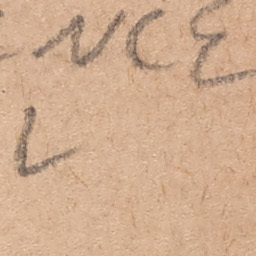 NCE
L